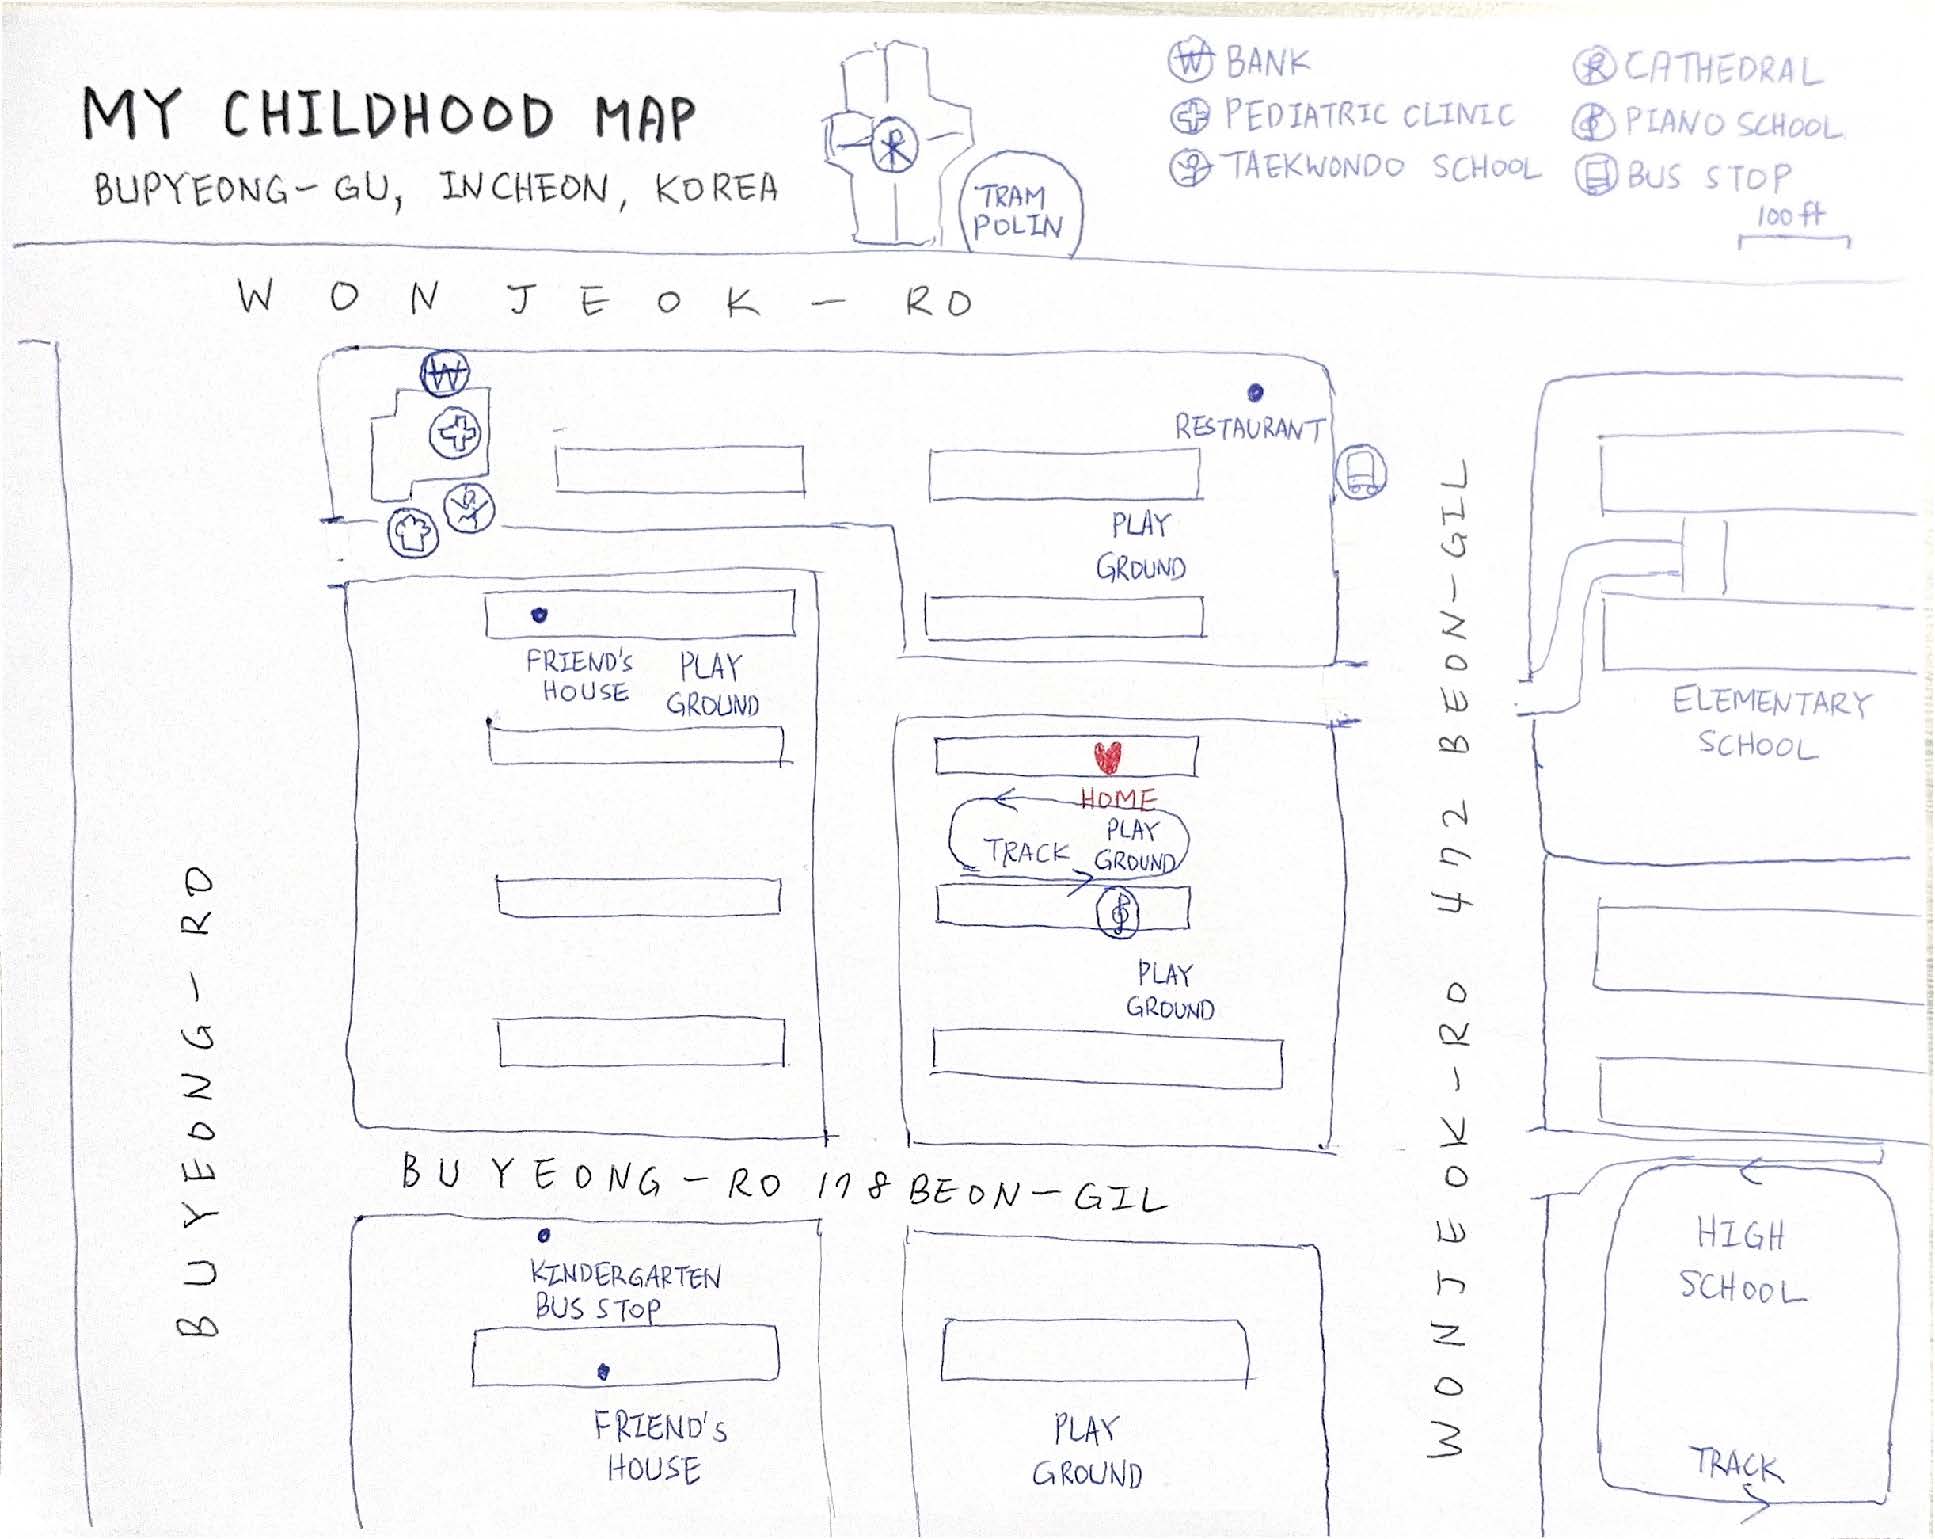 MY CHILDHOOD MAP
BUPYEONG-GU, INCHEON, KOREA
₩ BANK
PEDIATRIC CLINIC
TAEKWONDO SCHOOL
CATHEDRAL
PIANO SCHOOL
BUS STOP
100 ft
TRAM
POLIN
WONJEOK-RO
₩
RESTAURANT
PLAY
GROUND
FRIEND'S
HOUSE
PLAY
GROUND
HOME
TRACK
PLAY
GROUND
PLAY
GROUND
ELEMENTARY
SCHOOL
BUYEONG-RO
WONJEOK-RO 472 BEON-GIL
BUYEONG-RO 178 BEON-GIL
KINDERGARTEN
BUS STOP
FRIEND'S
HOUSE
PLAY
GROUND
HIGH
SCHOOL
TRACK